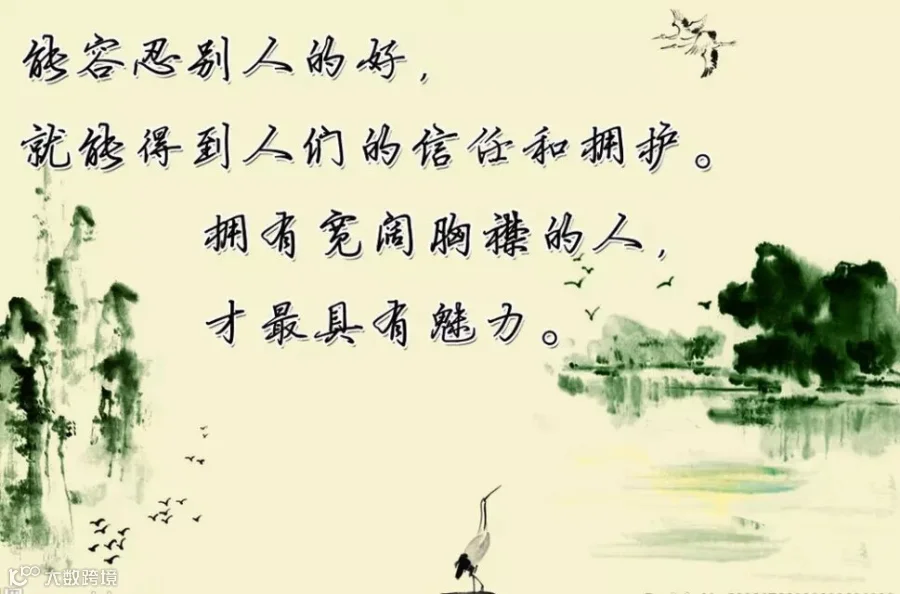 能容忍别人的好，
就能得到人们的信任和拥护。
拥有宽阔胸襟的人，
才最具有魅力。
大数跨境